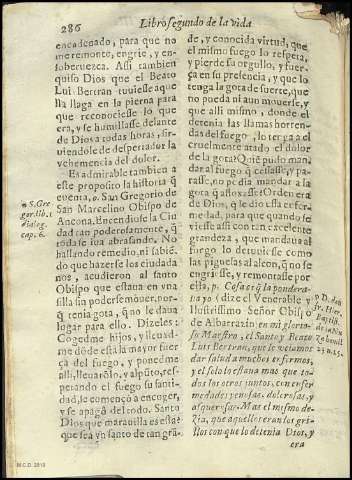 286
Libro segundo de la vida
encadenado, para que no
me remonte, engrie, y en-
soberuezca. Assi tambien
quiso Dios que el Beato
Luis Bertran tuuiesse aque
lla llaga en la pierna para
que reconociesse lo que
era, y se humillasse delante
de Dios a todas horas, sir-
uiendole de despertador la
vehemencia del dolor.
Es admirable tambien a
este proposito la historia q̃
cuenta, o. San Gregorio de
San Marcelino Obispo de
Ancona. Encendiose la Ciu
dad tan poderosamente, q̃
toda se iua abrasando. No
hallando remedio, ni sabiẽ-
do que hazerse los ciudada
nos, acudieron al santo
Obispo que estaua en vna
silla sin poderse mouer, por-
q̃ tenia gota, q̃ no le daua
lugar para ello. Dizeles:
Cogedme hijos, y lleuad-
me dõde està la mayor fuer
ça del fuego, y ponedme
alli, lleuarõlo, y al pũto, res-
petando el fuego su santi-
dad, le començò a encoger,
y se apagò del todo. Santo
Dios que marauilla es esta!
que sea yo santo es tan grã-
o S. Gre-
gor. lib. 1
dialog.
cap. 6.
de, y conocida virtud, que
el mismo fuego lo respeta,
y pierde su orgullo, y fuer-
ça en su presencia, y que yo
tenga la gota de suerte, que
no pueda ni aun mouerse, y
que alli mismo, donde el
detenia las llamas horren-
das del fuego, lo terya a el
cruelmente atado el dolor
de la gota? Quiẽ pudo man-
dar al fuego q̃ cessasse, y pa-
rasse, no pedia mandar a la
gota q̃ afloxasse? Orden era
de Dios, q̃ le dio essa enfer-
medad, para que quando se
viesse assi con tan excelente
grandeza, que mandaua al
fuego lo detuuiesse como
las piguelas al alcon, q̃ no se
engriesse, y remontasse por
ella, p. Cosa es q̃ la pondera-
ua yo (dize el Venerable y
Ilustrissimo Señor Obispo
de Albarrazin) en mi glorio-
so Martyro, el Santo y Beato
Luis Bertran, que le veiamos
dar salud a muchos enfermos,
y el solo lleuaua mas que to-
dos los otros juntos, con enfer-
medades penosas, dolorosas, y
asquerosas. Mas el mismo de-
zia, que aquellos eran los gri-
llos con que lo detenia Dios, y
era
p D. dõ
Fr. Hier.
M.C.D. 2013